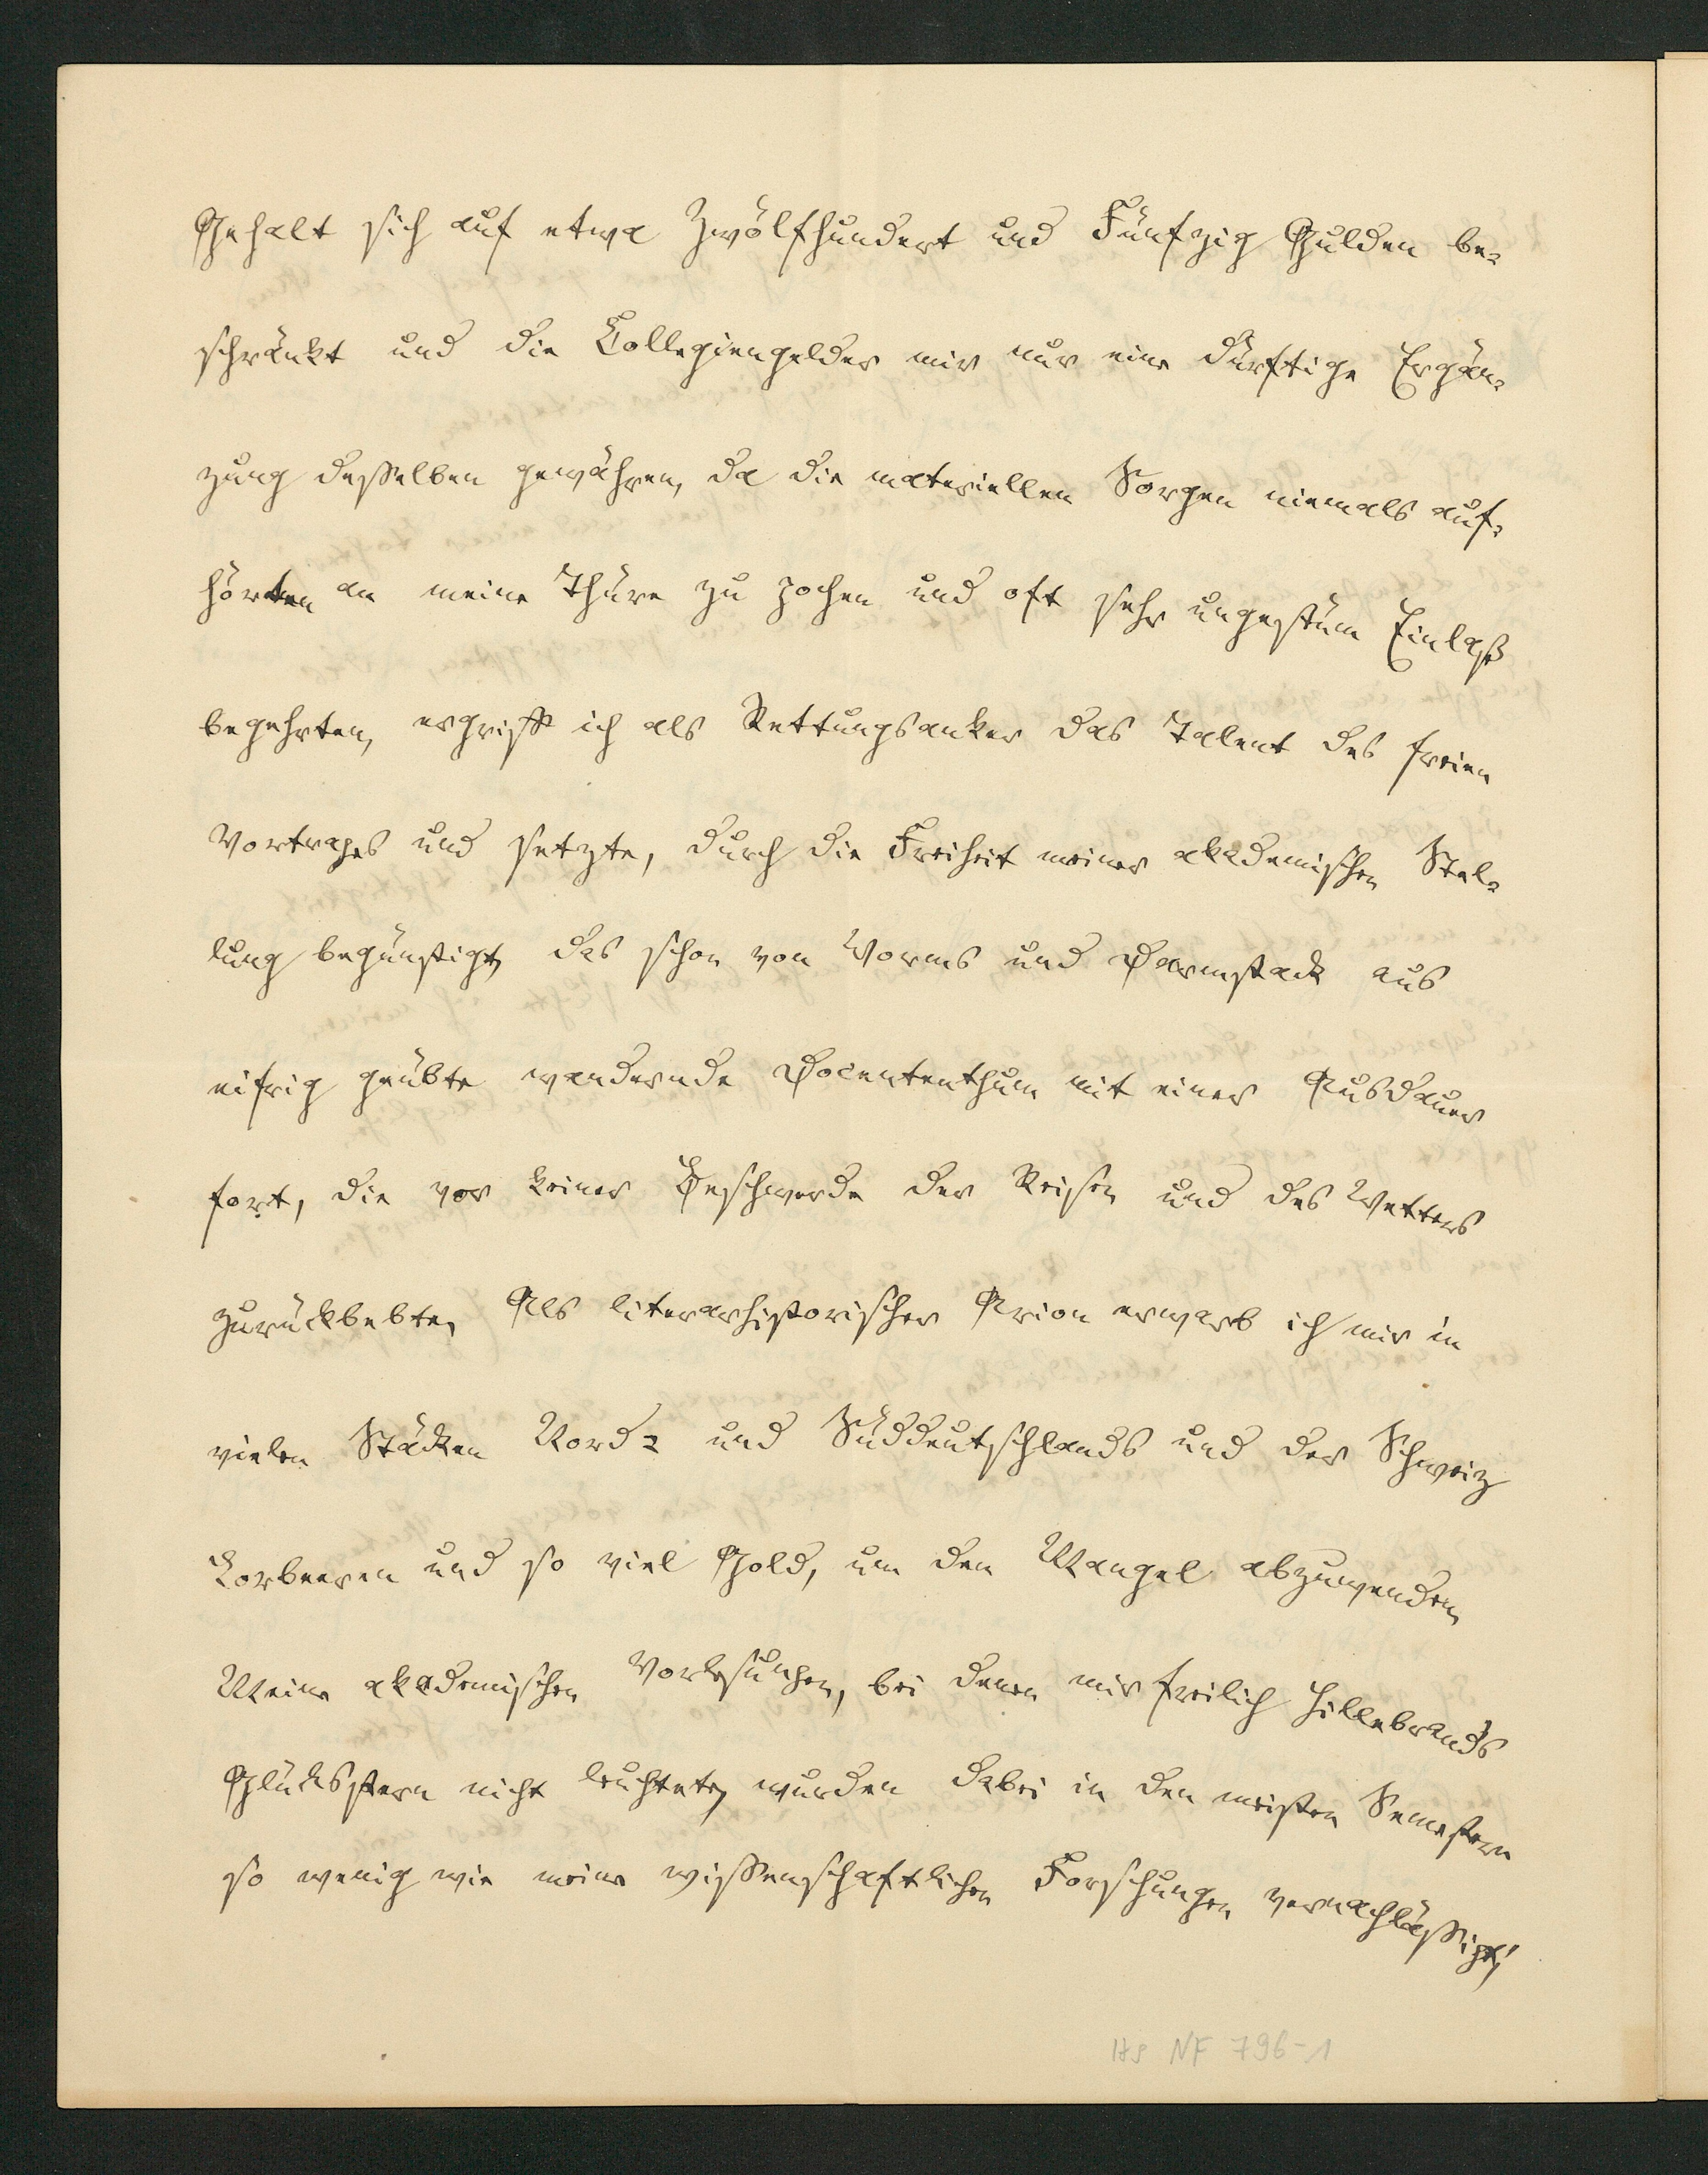 Gehalt sich auf etwa Zwölfhundert und Fünfzig Gulden be-
schränkt und die Collegiengelder mir nur eine dürftige Ergän-
zung desselben gewähren, da die materiellen Sorgen niemals auf-
hörten an meine Thüre zu pochen und oft sehr ungestüm Einlaß
begehrten, ergriff ich als Rettungsanker das Talent des freien
Vortrages und setzte, durch die Freiheit meiner akademischen Stel-
lung begünstigt, das schon von Worms und Darmstadt aus
eifrig geübte wandernde Docententhum mit einer Ausdauer
fort, die vor keiner Beschwerde der Reisen und des Wetters
zurückbebte. Als literarhistorischer Arion erwarb ich mir in
vielen Städten Nord- und Süddeutschlands und der Schweiz
Lorbeeren und so viel Gold, um den Mangel abzuwenden.
Meine akademischen Vorlesungen, bei denen mir freilich Hillebrands
Glücksstern nicht leuchtete, wurden dabei in den meisten Semestern
so wenig wie meine wissenschaftlichen Forschungen vernachlässigt;
Hs NF 796-1